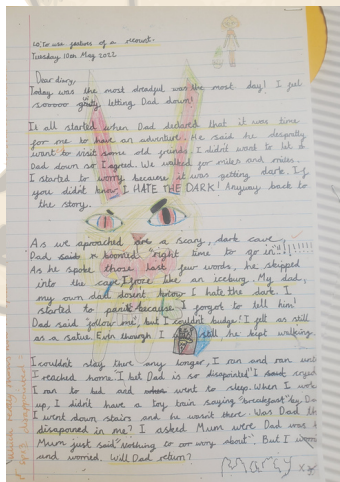 LO: To use features of a recount.
Tuesday 10th May 2022
Dear diary,
Today was the most dreadful was the most day! I feel
sooooo guilty letting Dad down!
It all started when Dad declared that it was time
for me to have an adventure. He said he
want to visit some old I didn't want to let
Dad down so I agreed. We walked for miles and miles.
I started to worry because it was getting dark. If
you didn't know I HATE THE DARK! Anyway back to
the story.
As we aproached a scary, dark cave
Dad said boomed "right time to go in"!!!!!!
As he spoke those last few words, he skipped
into the cave I froze like an iceburg. My dad,
my own dad dosent know I hate the dark. I
started to panic because I forgot to tell him!
Dad said "follow me", but I couldn't budge! I felt as still
as a satue. Even though I still he kept walking.
I couldn't stay there any longer, I ran and ran
I reached home. I bet Dad is so disapointed I
I ran to bed and went to sleep. When I
up, I didn't have a toy train saying "breakfast"
I went down stairs and he wasn't there. Was Dad
disapouned in me? I asked Mum were Dad was
Mum just said "nothing to worry about". But I
and worried. Will Dad return?